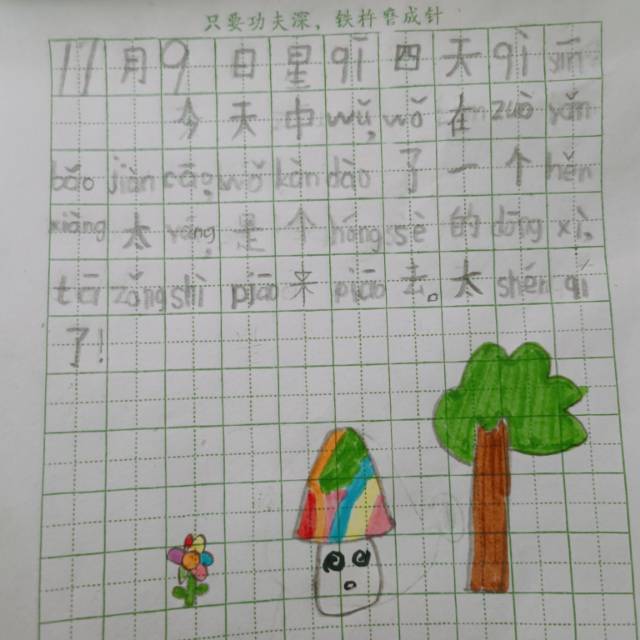 只要功夫深，铁杵磨成针
11月9日星qī四天qì
今天中wǔ,wǒ在zuò yǎn
bǎo jiàn cāo,wǒ kàn dào了一个hěn
xiàng太yáng,是个hóng sè的dōng xi,
tā zǒng shì piāo来piāo去。太shén qí
了!